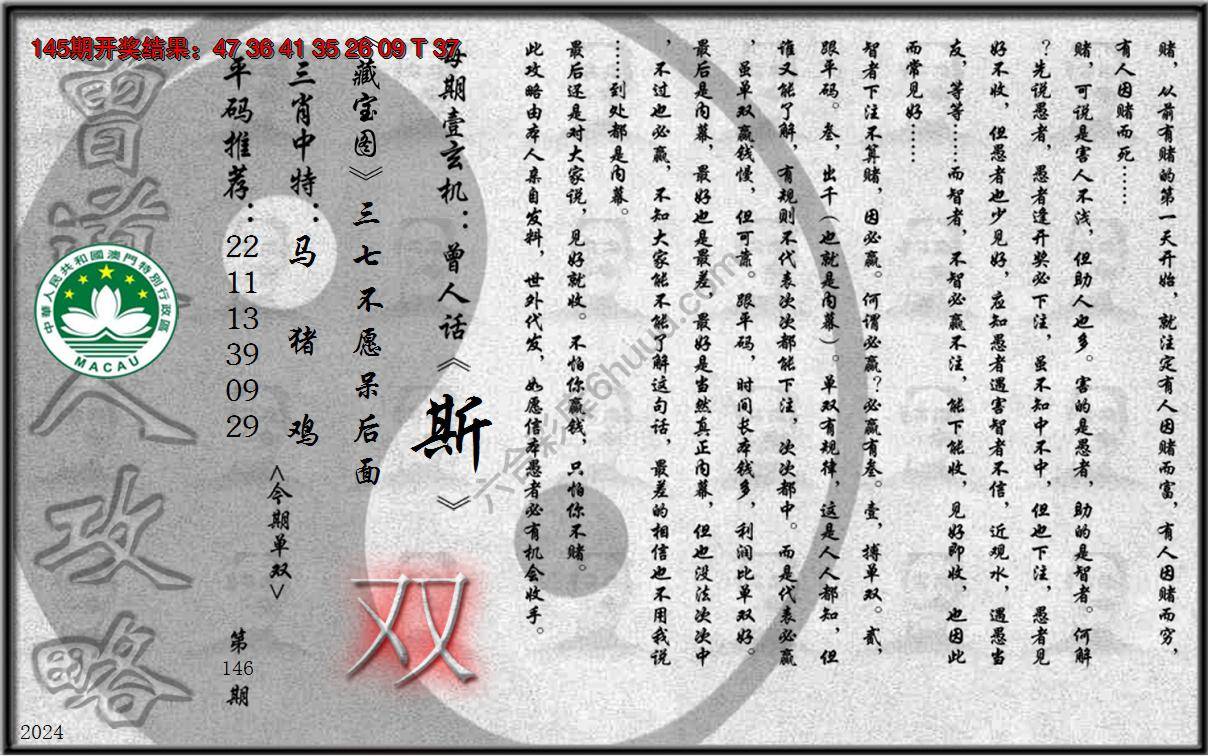 145期开奖结果：47 36 41 35 26 09 T 37
赌，从前有赌的第一天开始，就注定有人因赌而富，有人因赌而穷，
有人因赌而死……
赌，可说是害人不浅，但助人也多。害的是愚者，助的是智者。何解
？先说愚者，愚者逢开奖必下注，虽不知中不中，但也下注，愚者见
好不收，但愚者也少见好，应知愚者遇害智者不信，近观水，遇愚当
友，等等……而智者，不智必赢不注，能下能收，见好即收，也因此
而常见好……
智者下注不算赌，因必赢。何谓必赢？必赢有叁。壹，搏单双。贰，
跟平码。叁，出千（也就是内幕）。单双有规律，这是人人都知，但
谁又能了解，有规则不代表次次都能下注，次次都中。而是代表必赢
，虽单双赢钱慢，但可靠。跟平码，时间长本钱多，利润比单双好。
最后是内幕，最好也是最差，最好是当然真正内幕，但也没法次次中
，不过也必赢，不知大家能不能了解这句话，最差的相信也不用我说
……到处都是内幕。
最后还是对大家说，见好就收。不怕你赢钱，只怕你不赌。
此攻略由本人亲自发料，世外代发，如愿信本愚者必有机会收手。
每期壹玄机：曾人话《斯》
《藏宝图》三七不愿呆后面
双
三肖中特：马 猪 鸡
<今期单双>
平码推荐：22 11 13 39 09 29
第146期
曾道人攻略
中華人民共和國澳門特別行政區
MACAU
六合彩库6huuu.com
2024